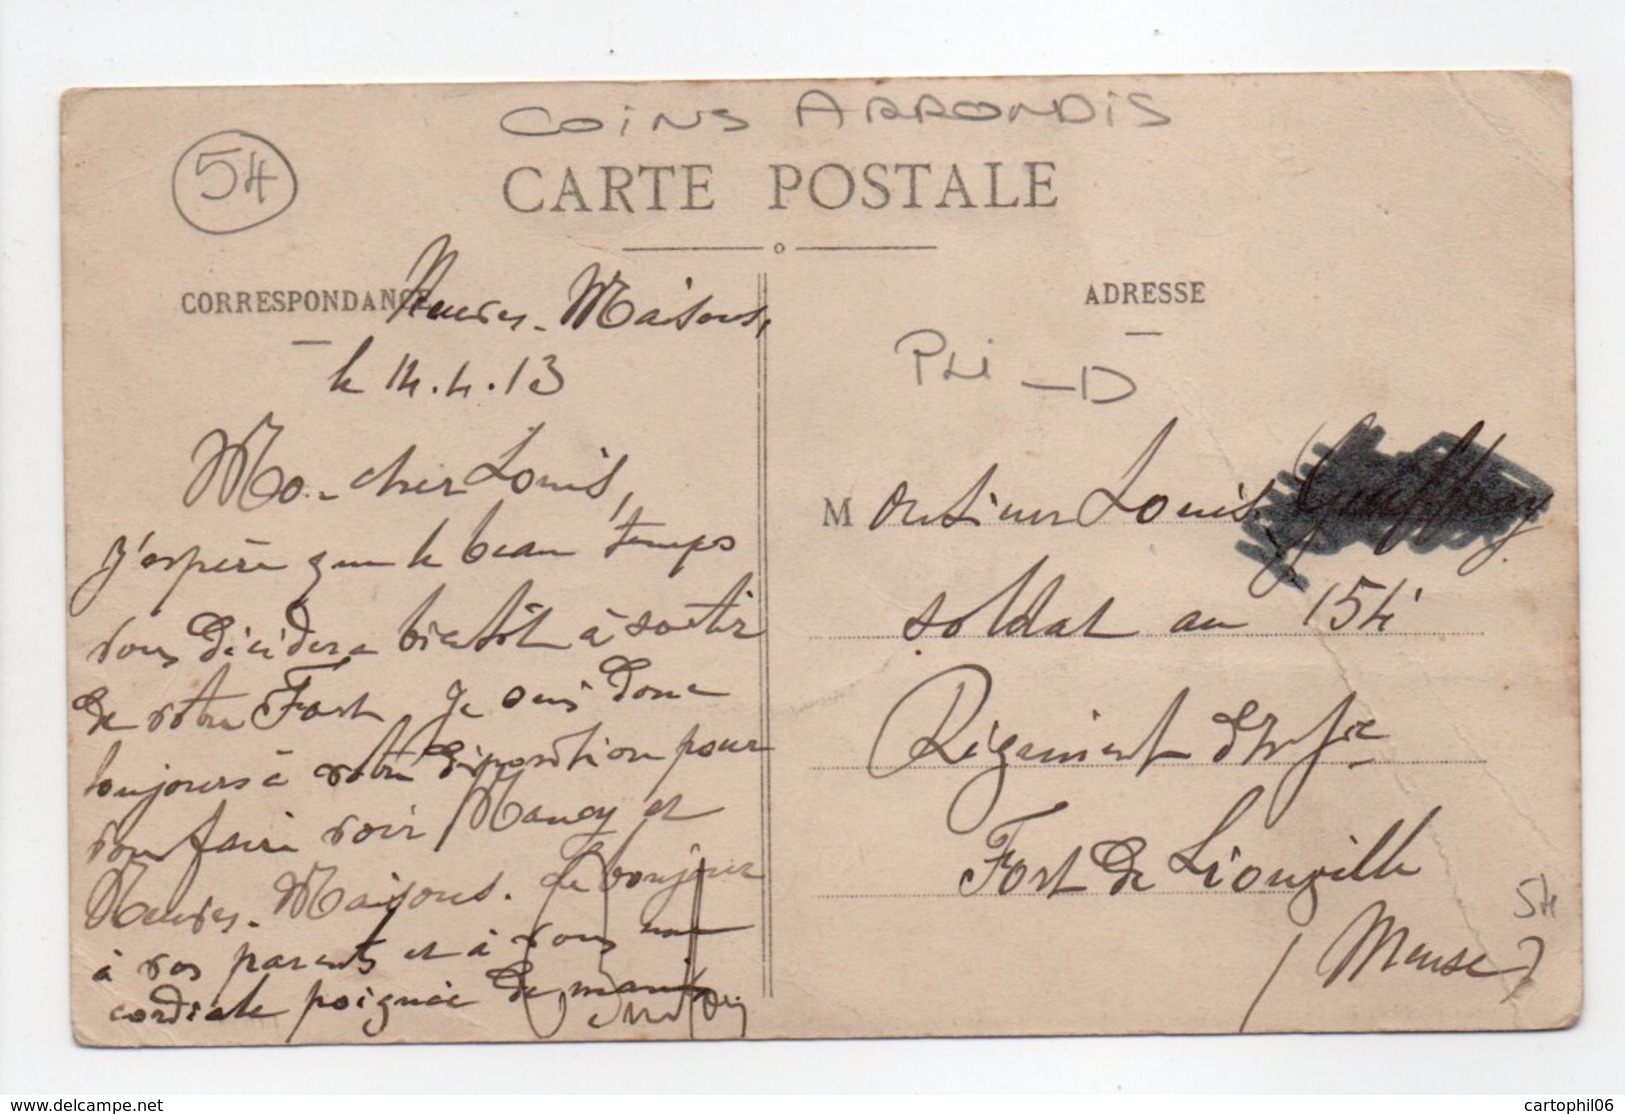 COINS ARRONDIS
54
CARTE POSTALE
CORRESPONDANCE
Neuves-Maisons,
le 14.4.13
Mon cher Louis,
j'espère que le beau temps
vous décidera bientôt à sortir
de votre Fort. Je suis donc
toujours à votre disposition pour
vous faire voir Nancy et
Neuves-Maisons. Le bonjour
à vos parents et à vous une
cordiale poignée de main
ADRESSE
PLI - D
Monsieur Louis
soldat au 154
Régiment d'Infie
Fort de Liouville
(Meuse)
54
delcampe.net
cartophil06